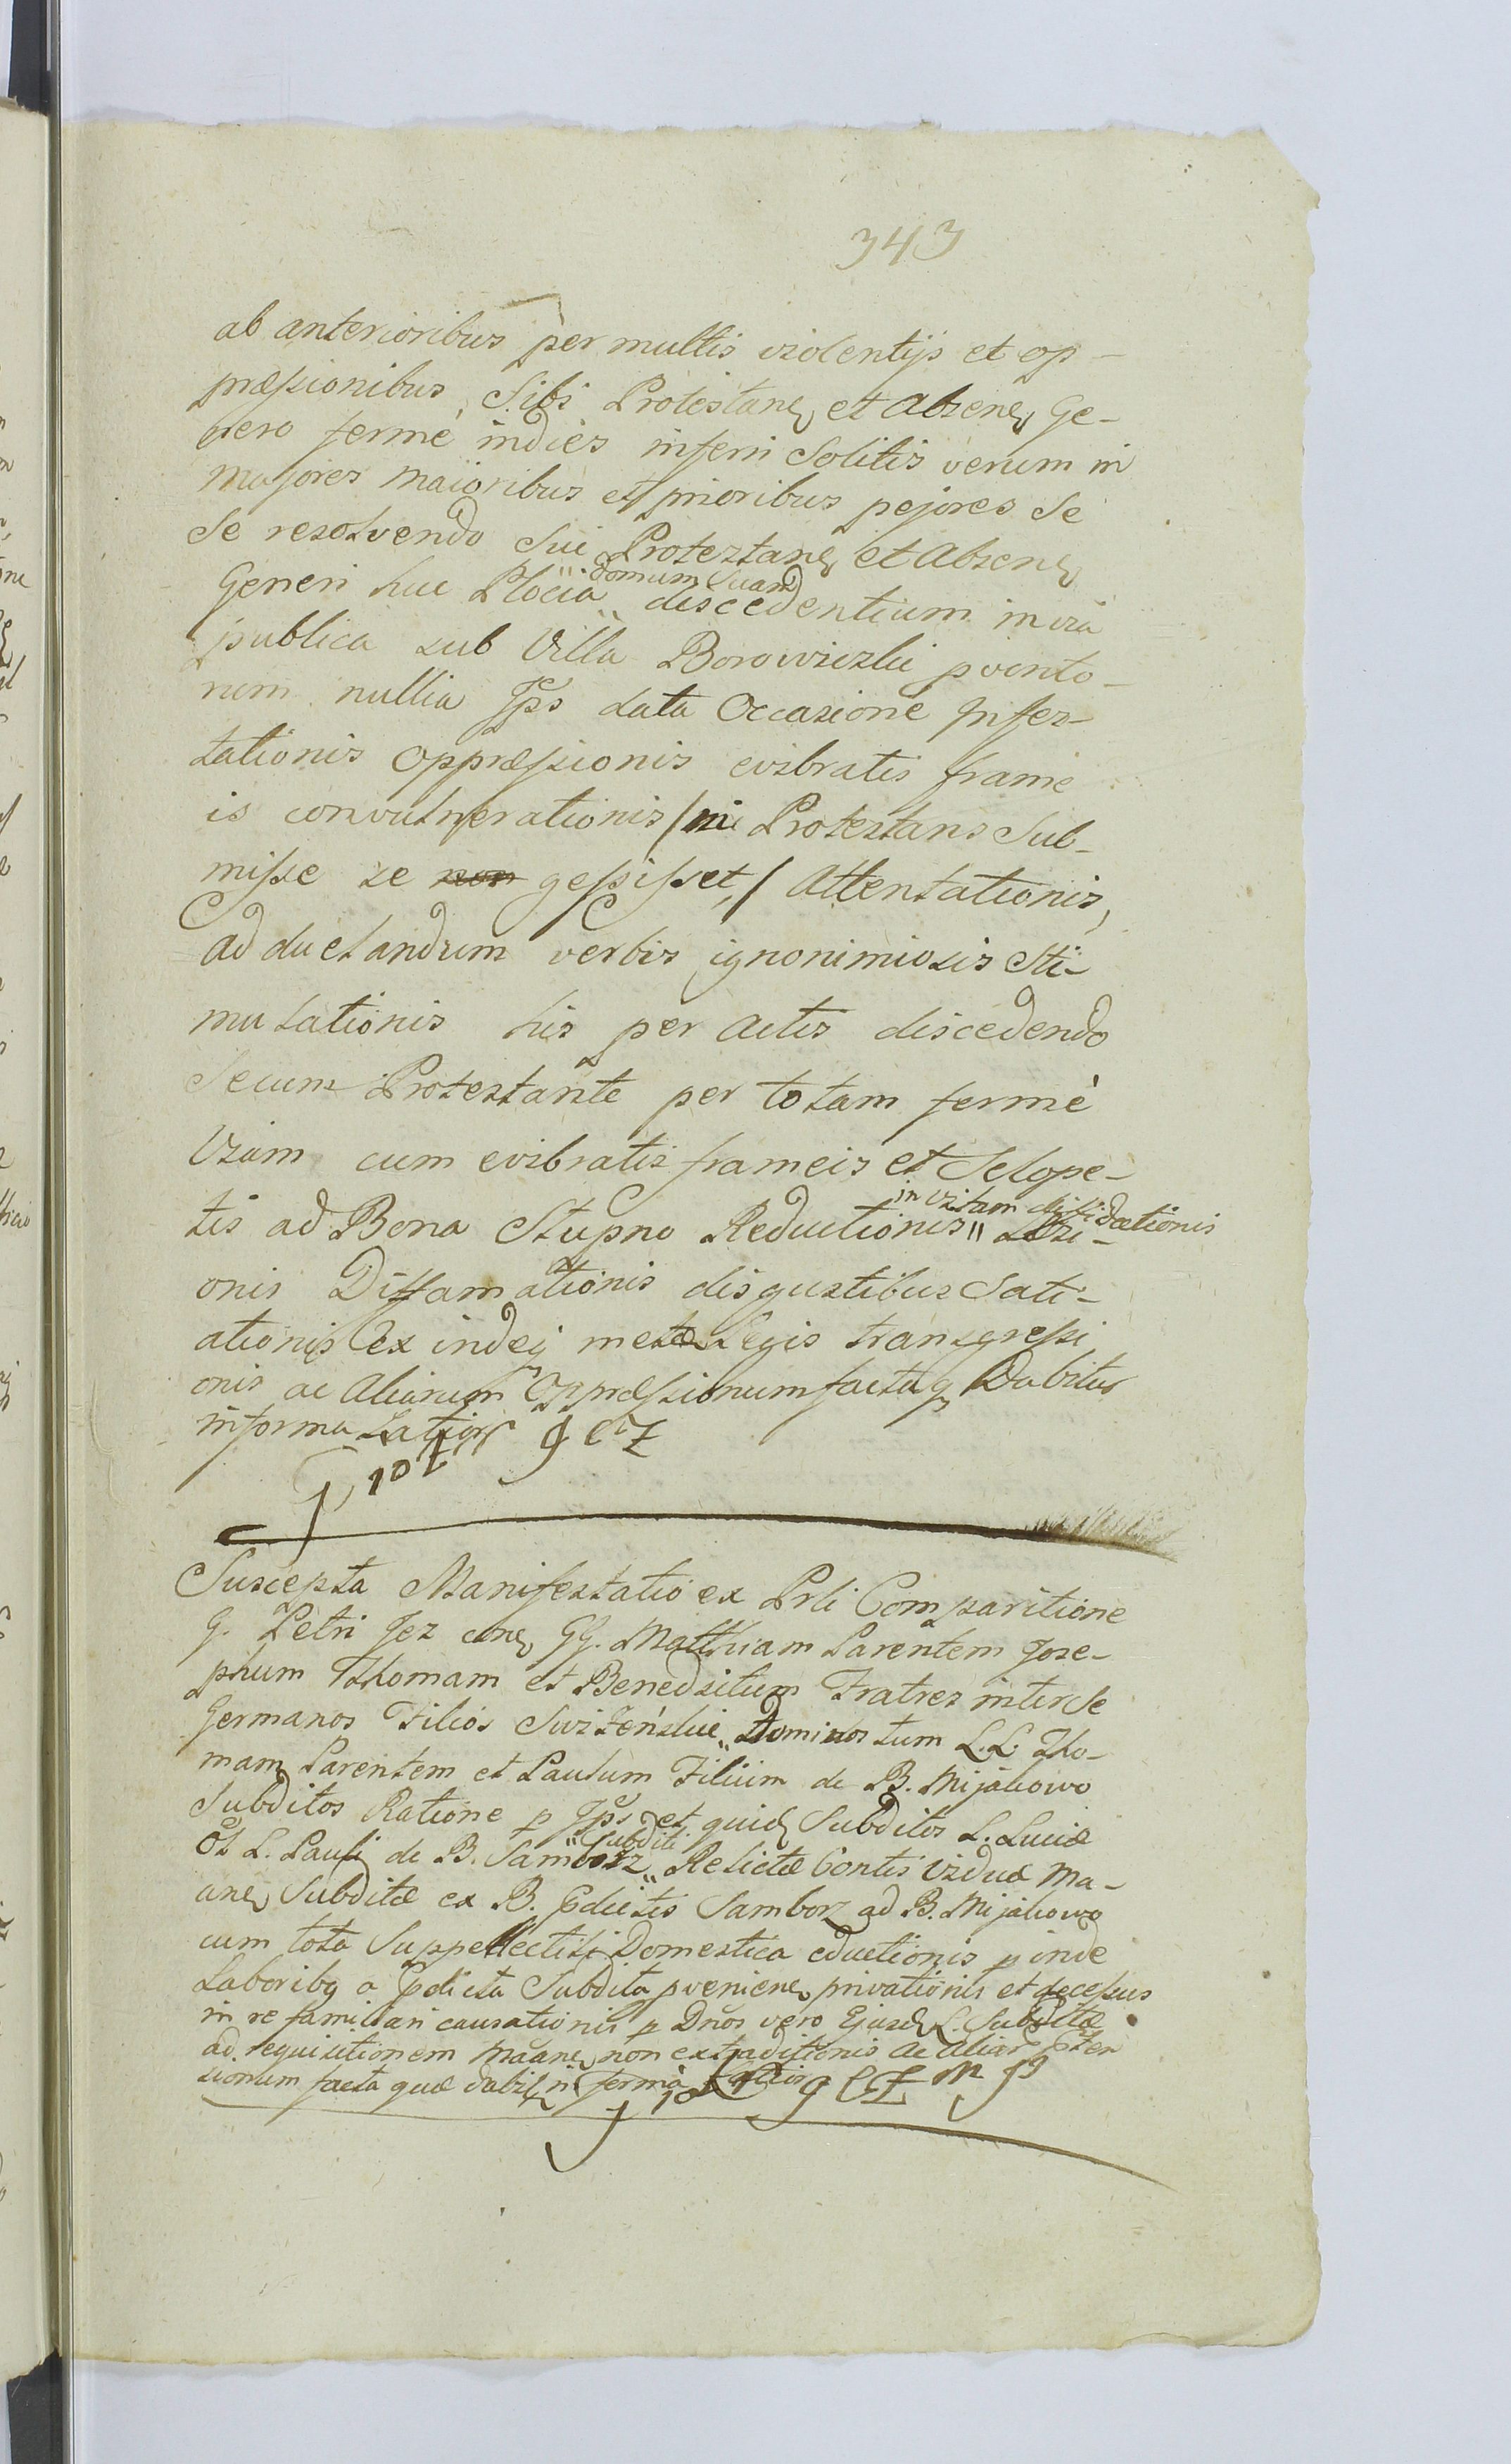 343
ab anterioribus per multis violentijs et op-
præssionibus, Sibi Protestane et Absene Ge-
nero fermè indies inferri Solitis verum in
majores maioribus et prioribus pejores Se
Se resolvendo Sui Protestane et Absene
domum Suam
Generi huc Plocia discedentium in via
publica sub Villa Borowiczki pvento-
rum nullia Jps data Occasione Infes-
tationis oppræssionis evibratis frame
is convulnerationis / ni Protestans Sub-
misse se non gessisset, / Attentationis,
Ad duelandum verbis ignonimiosis Sti-
mulationis his per actis discedendo
Secum Protestante per totam fermè
Viam cum evibratis frameis et Sclope-
in vitam diffidationis
tis ad Bona Stupno Reductionis Læsi-
onis Diffamationis disgustibus Sati-
ationis ex indeq metæ Legis transgressi
onis ac Aliarum Oppræssionum facta q Dabitur
informa Latiori
Suscepta Manifestatio ex Prli Comparitione
G. Petri Jez cone GG. Matthiam Parentem Jose-
phum Thomam et Benedictum Fratres inter Se
Germanos Filios Swizeńskie Dominos tum L.L. Tho-
mam Parentem et Paulum Filium de B. Mijakowo
Subditos Ratione p Jps et quid Subditos L. Luciæ
Subditi
Ol L. Pauli de B. Samborz Relictæ Contis Viduæ Ma-
ane Subditæ ex B. pdictis Samborz ad B. Mijakowo
cum tota Suppellectili Domestica eductionis p inde
Laboribq a pdicta Subdita pveniene privationis et decessus
in re familiari causationis p Dnos vero Ejusd L. Subditæ
ad requisitionem Maane non extraditionis ac Aliar pten
sionum facta quæ dabit in forma Latiori